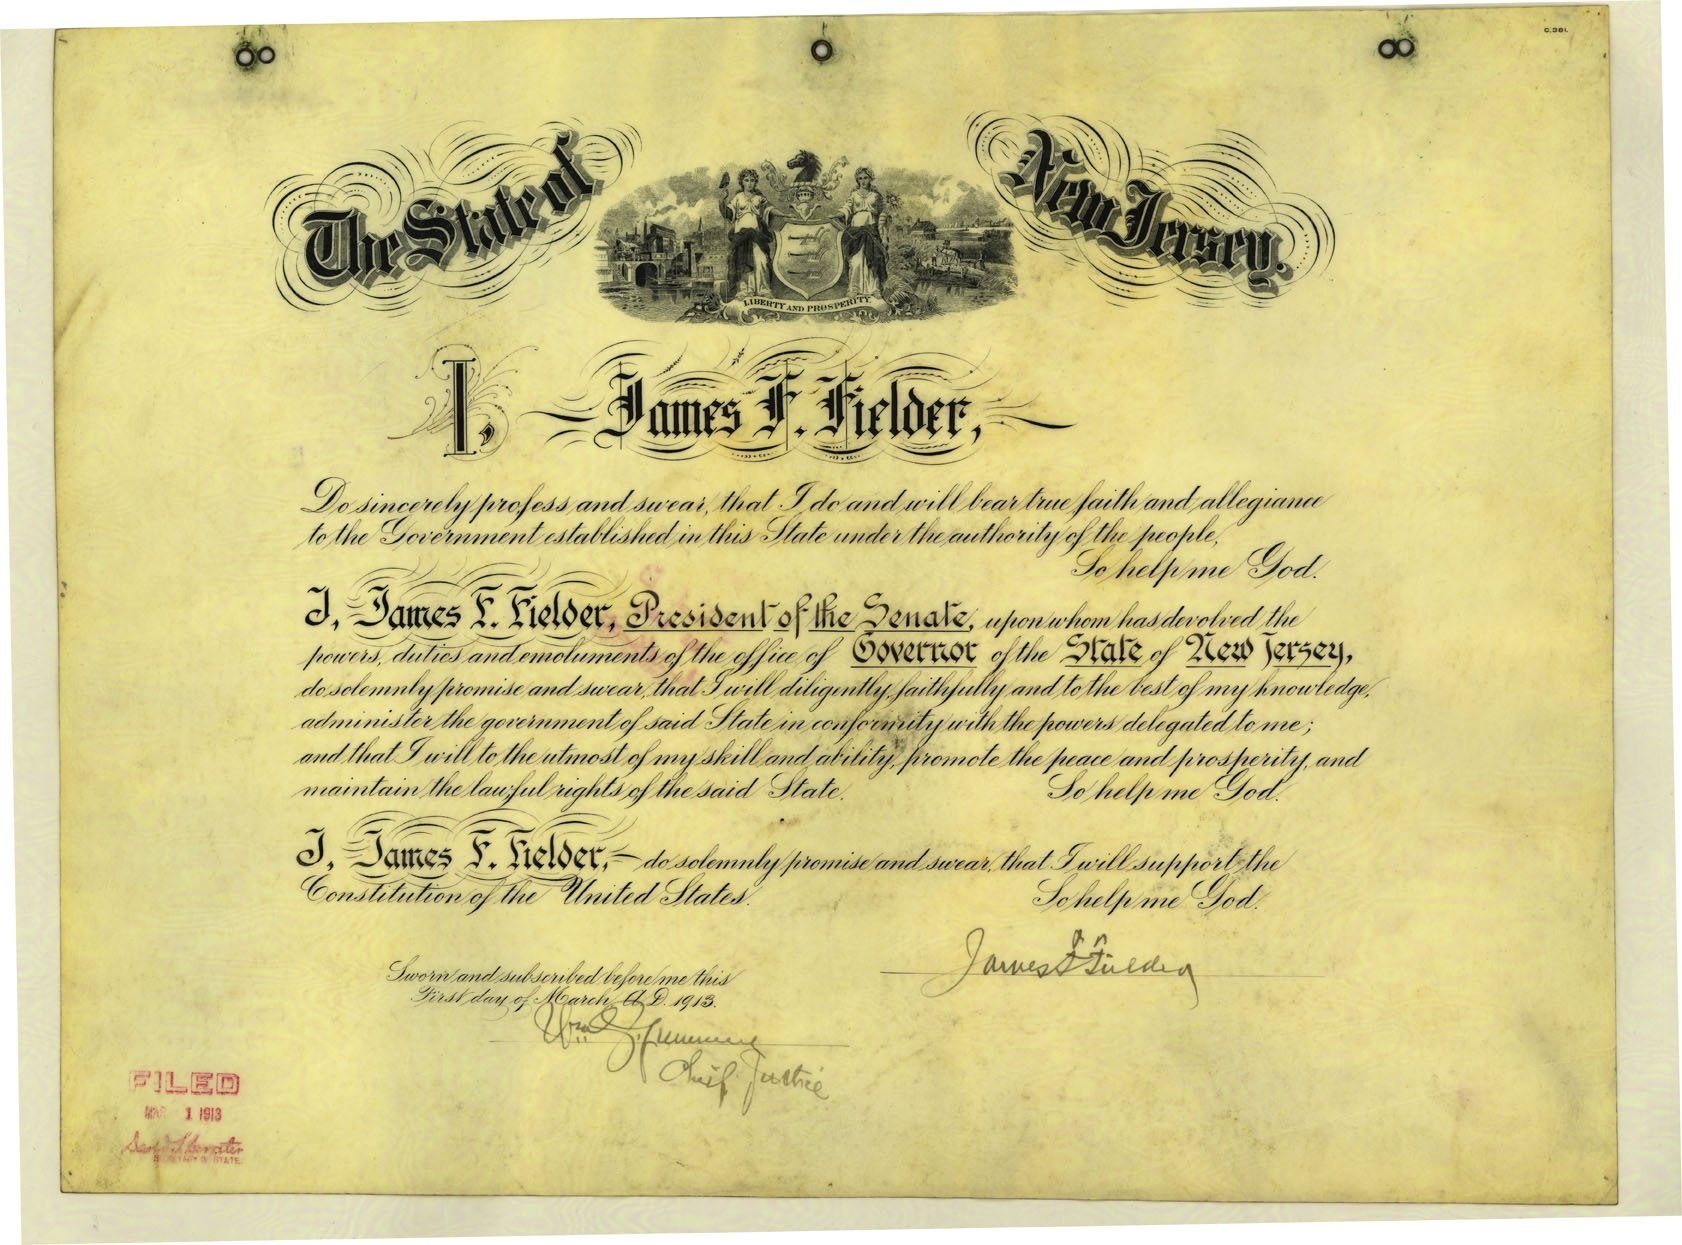 C.381.
The State of New Jersey.
LIBERTY AND PROSPERITY
I, James F. Fielder,
Do sincerely profess and swear, that I do and will bear true faith and allegiance
to the Government established in this State under the authority of the people,
So help me God.
I, James F. Fielder, President of the Senate, upon whom has devolved the
powers, duties and emoluments of the office of Governor of the State of New Jersey,
do solemnly promise and swear, that I will diligently, faithfully and to the best of my knowledge,
administer the government of said State in conformity with the powers delegated to me;
and that I will to the utmost of my skill and ability, promote the peace and prosperity, and
maintain the lawful rights of the said State. So help me God.
I, James F. Fielder, do solemnly promise and swear, that I will support the
Constitution of the United States. So help me God.
James F Fielder
Sworn and subscribed before me this
First day of March A.D. 1913.
Wm S. Gummere
Chief Justice
FILED
MAR 1 1913
SECRETARY OF STATE.